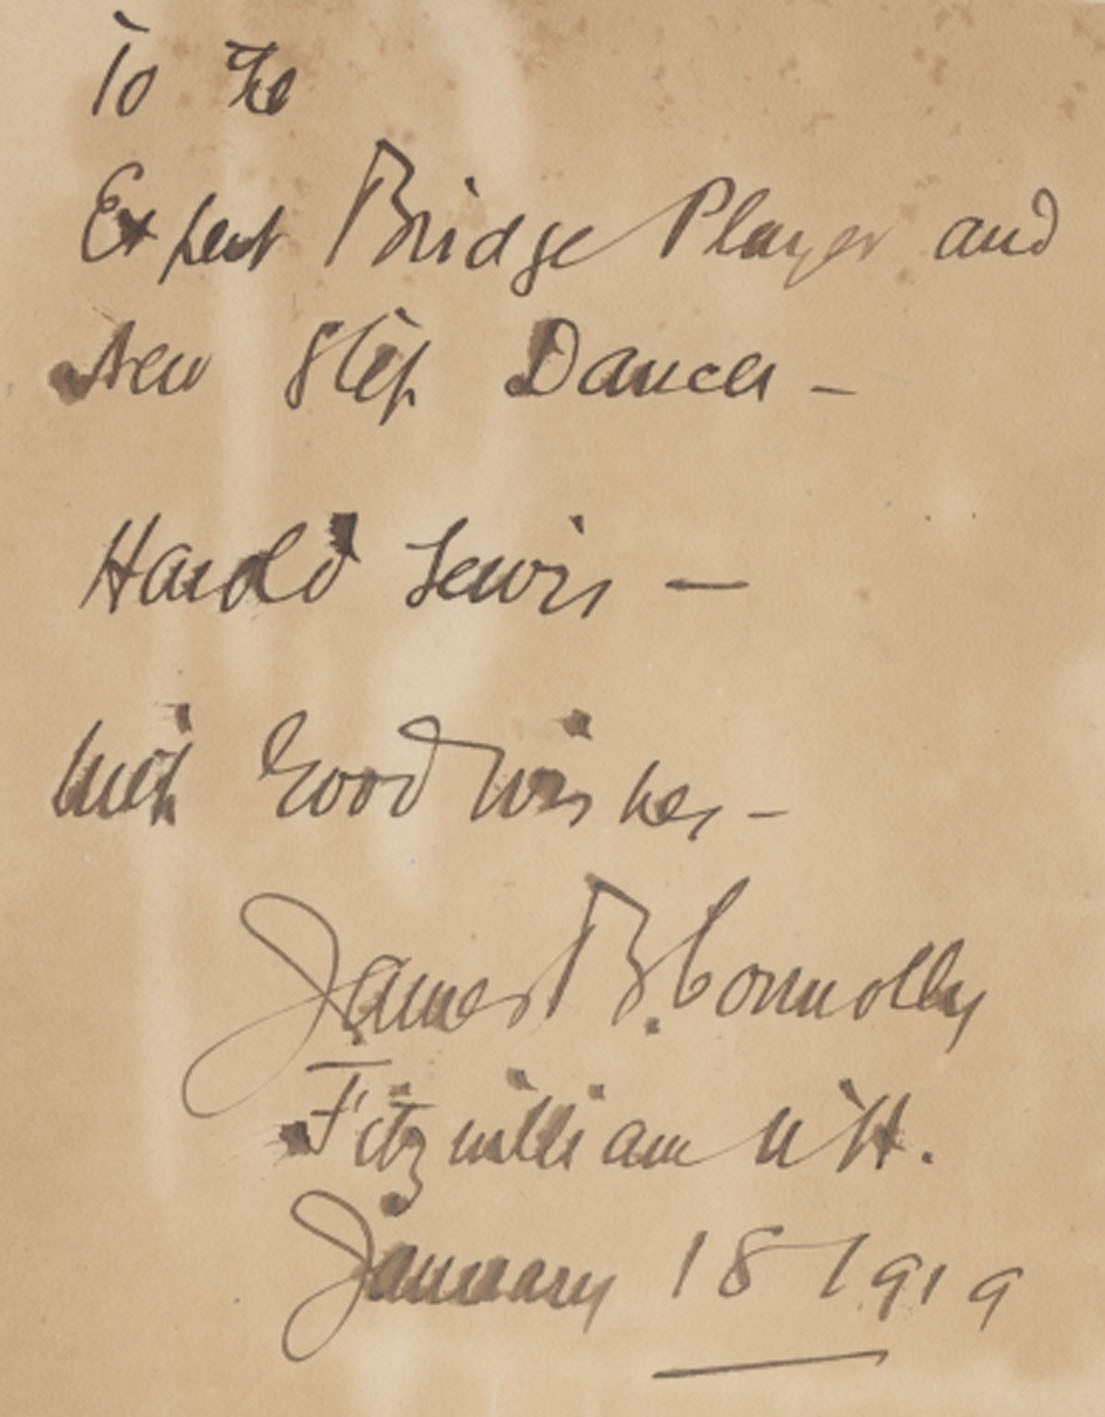 To the
Expert Bridge Player and
New Step Dancer —
Harold Lewis —
with Good Wishes —
James B. Connolly
Fitzwilliam N H.
January 18 1919